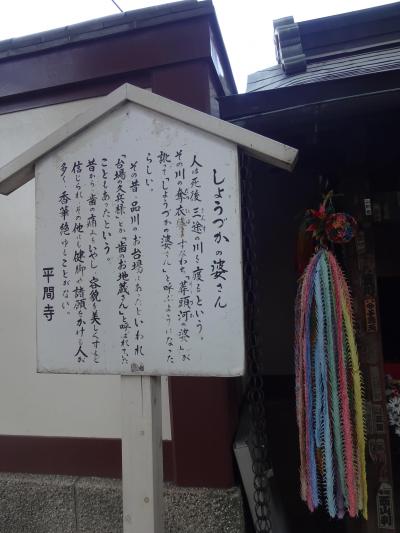 しょうづかの婆さん
人は死後、三途の川を渡るという。
その川の奪衣婆すなわち「葬頭河の婆」が
訛って「しょうづかの婆さん」と呼ぶようになった
らしい。
その昔、品川のお台場にあったといわれ
「台場の久兵様」とか「歯のお地蔵さん」と呼ばれていた
こともあったという。
昔から歯の痛みをいやし、容貌を美しくすると
信じられ、その他にも健脚や諸願をかける人が
多く、香華絶ゆることがない。
平間寺